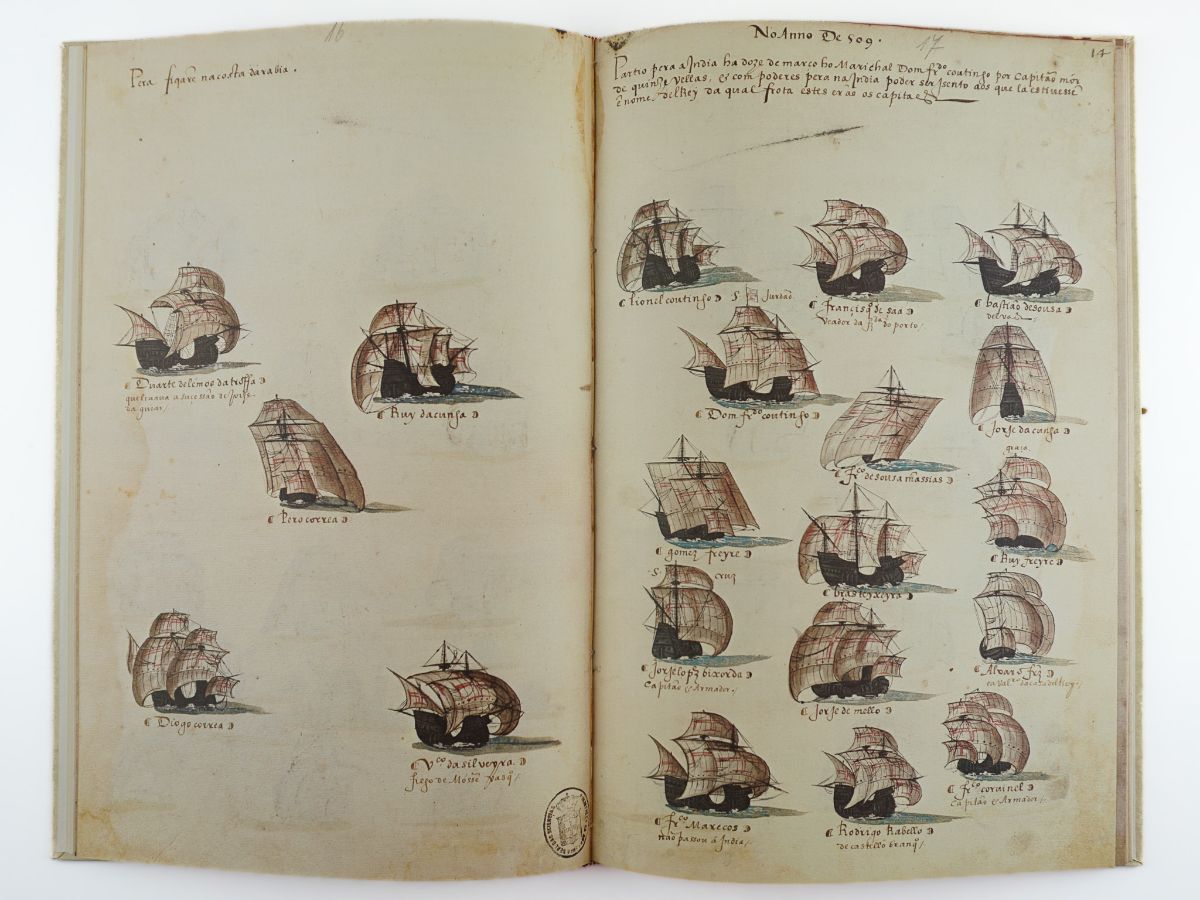 16
Pera fiqare na costa darabia.
Duarte de lemos da troffa
que leuaua a suçessão de Jorse
da guiar/
Ruy dacunha
Pero correa
Diogo correa
Vco da silveyra
No Anno De 509.
17
14
Partio pera a India ha doze de marco ho Marichal Dom frdo coutinho por capitão mór
de quinze vellas, & com poderes pera na India poder ser Isento aos que la estivessē
ē nome delRey da qual frota estes erão os capitaẽs
lionel coutinho
Francisqo de saa
Veador da fda do porto/
bastião de sousa
delvas
S. Jurdão
Dom frdo coutinho
Jorse da cunha
fco de sousa mãssias
graça
gomez freyre
Ruy freyre
bras teyxeyra
S. cruz
Jorse lopz bixorda
Capitão & Armador/
Jorse de mello
Alvaro frz
cavalro da casa delRey/
fco Marecos
não passou á India/
Rodrigo Rabello
de castello branqo/
fco corvinel
Capitão & Armador/